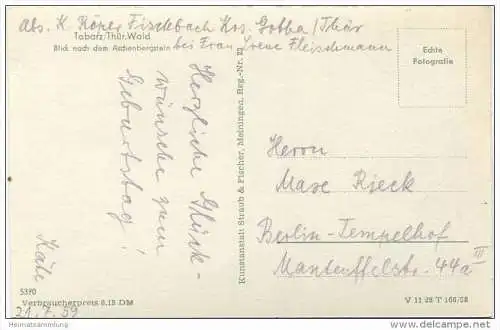 Abs. K. Röper Fischbach Krs. Gotha/Thür
bei Frau Irene Fleischmann
Tabarz/Thür. Wald
Blick nach dem Aschenbergstein
Herzliche Glück-
wünsche zum
Geburtstag!
Käte
21.7.59
5370
Verbraucherpreis 0,15 DM
Kunstanstalt Straub & Fischer, Meiningen, Reg.-Nr.
Echte
Fotografie
Herrn
Max Rieck
Berlin-Tempelhof
Manteuffelstr. 44a III
V 11 28 T 166/58
Heimatsammlung